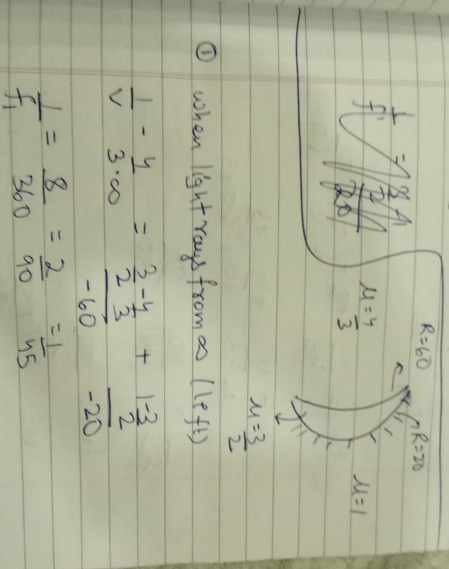 R=60
R=20
μ=4/3
μ=1
μ=3/2
① when light rays from ∞ (left)
1/v - 4/3·∞ = (3/2 - 4/3)/-60 + (1-3/2)/-20
1/f₁ = 8/360 = 2/90 = 1/45